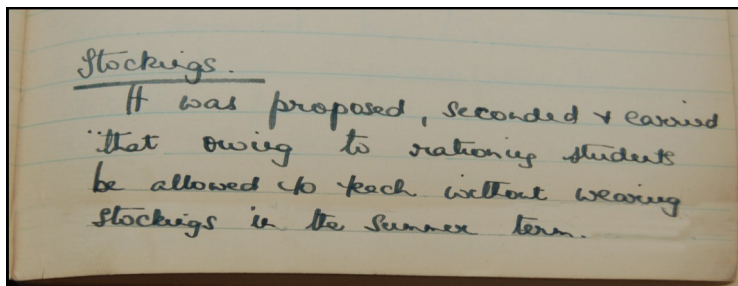 Stockings.
It was proposed, seconded & carried
that owing to rationing students
be allowed to teach without wearing
stockings in the Summer term.